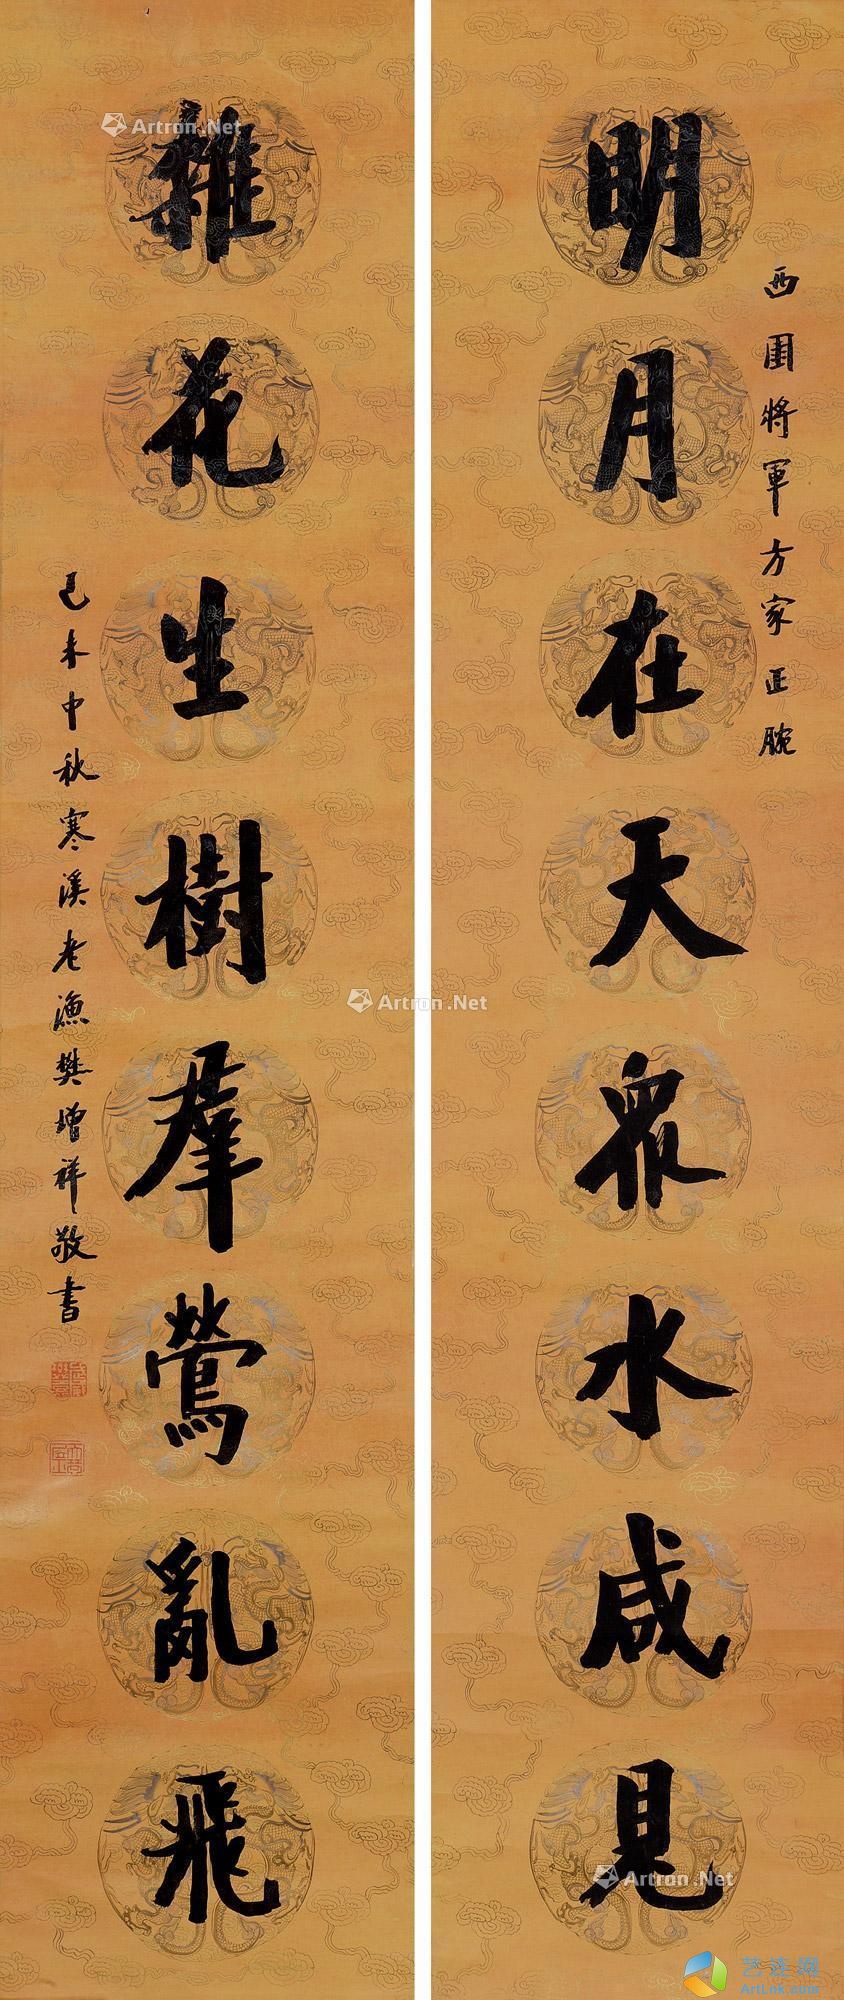 明月在天眾水咸見
西園將軍方家正腕
雜花生樹羣鶯亂飛
己未中秋寒溪老漁樊增祥敬書
Artron.Net
Artron.Net
Artron.Net
艺连网
ArtLnk.com